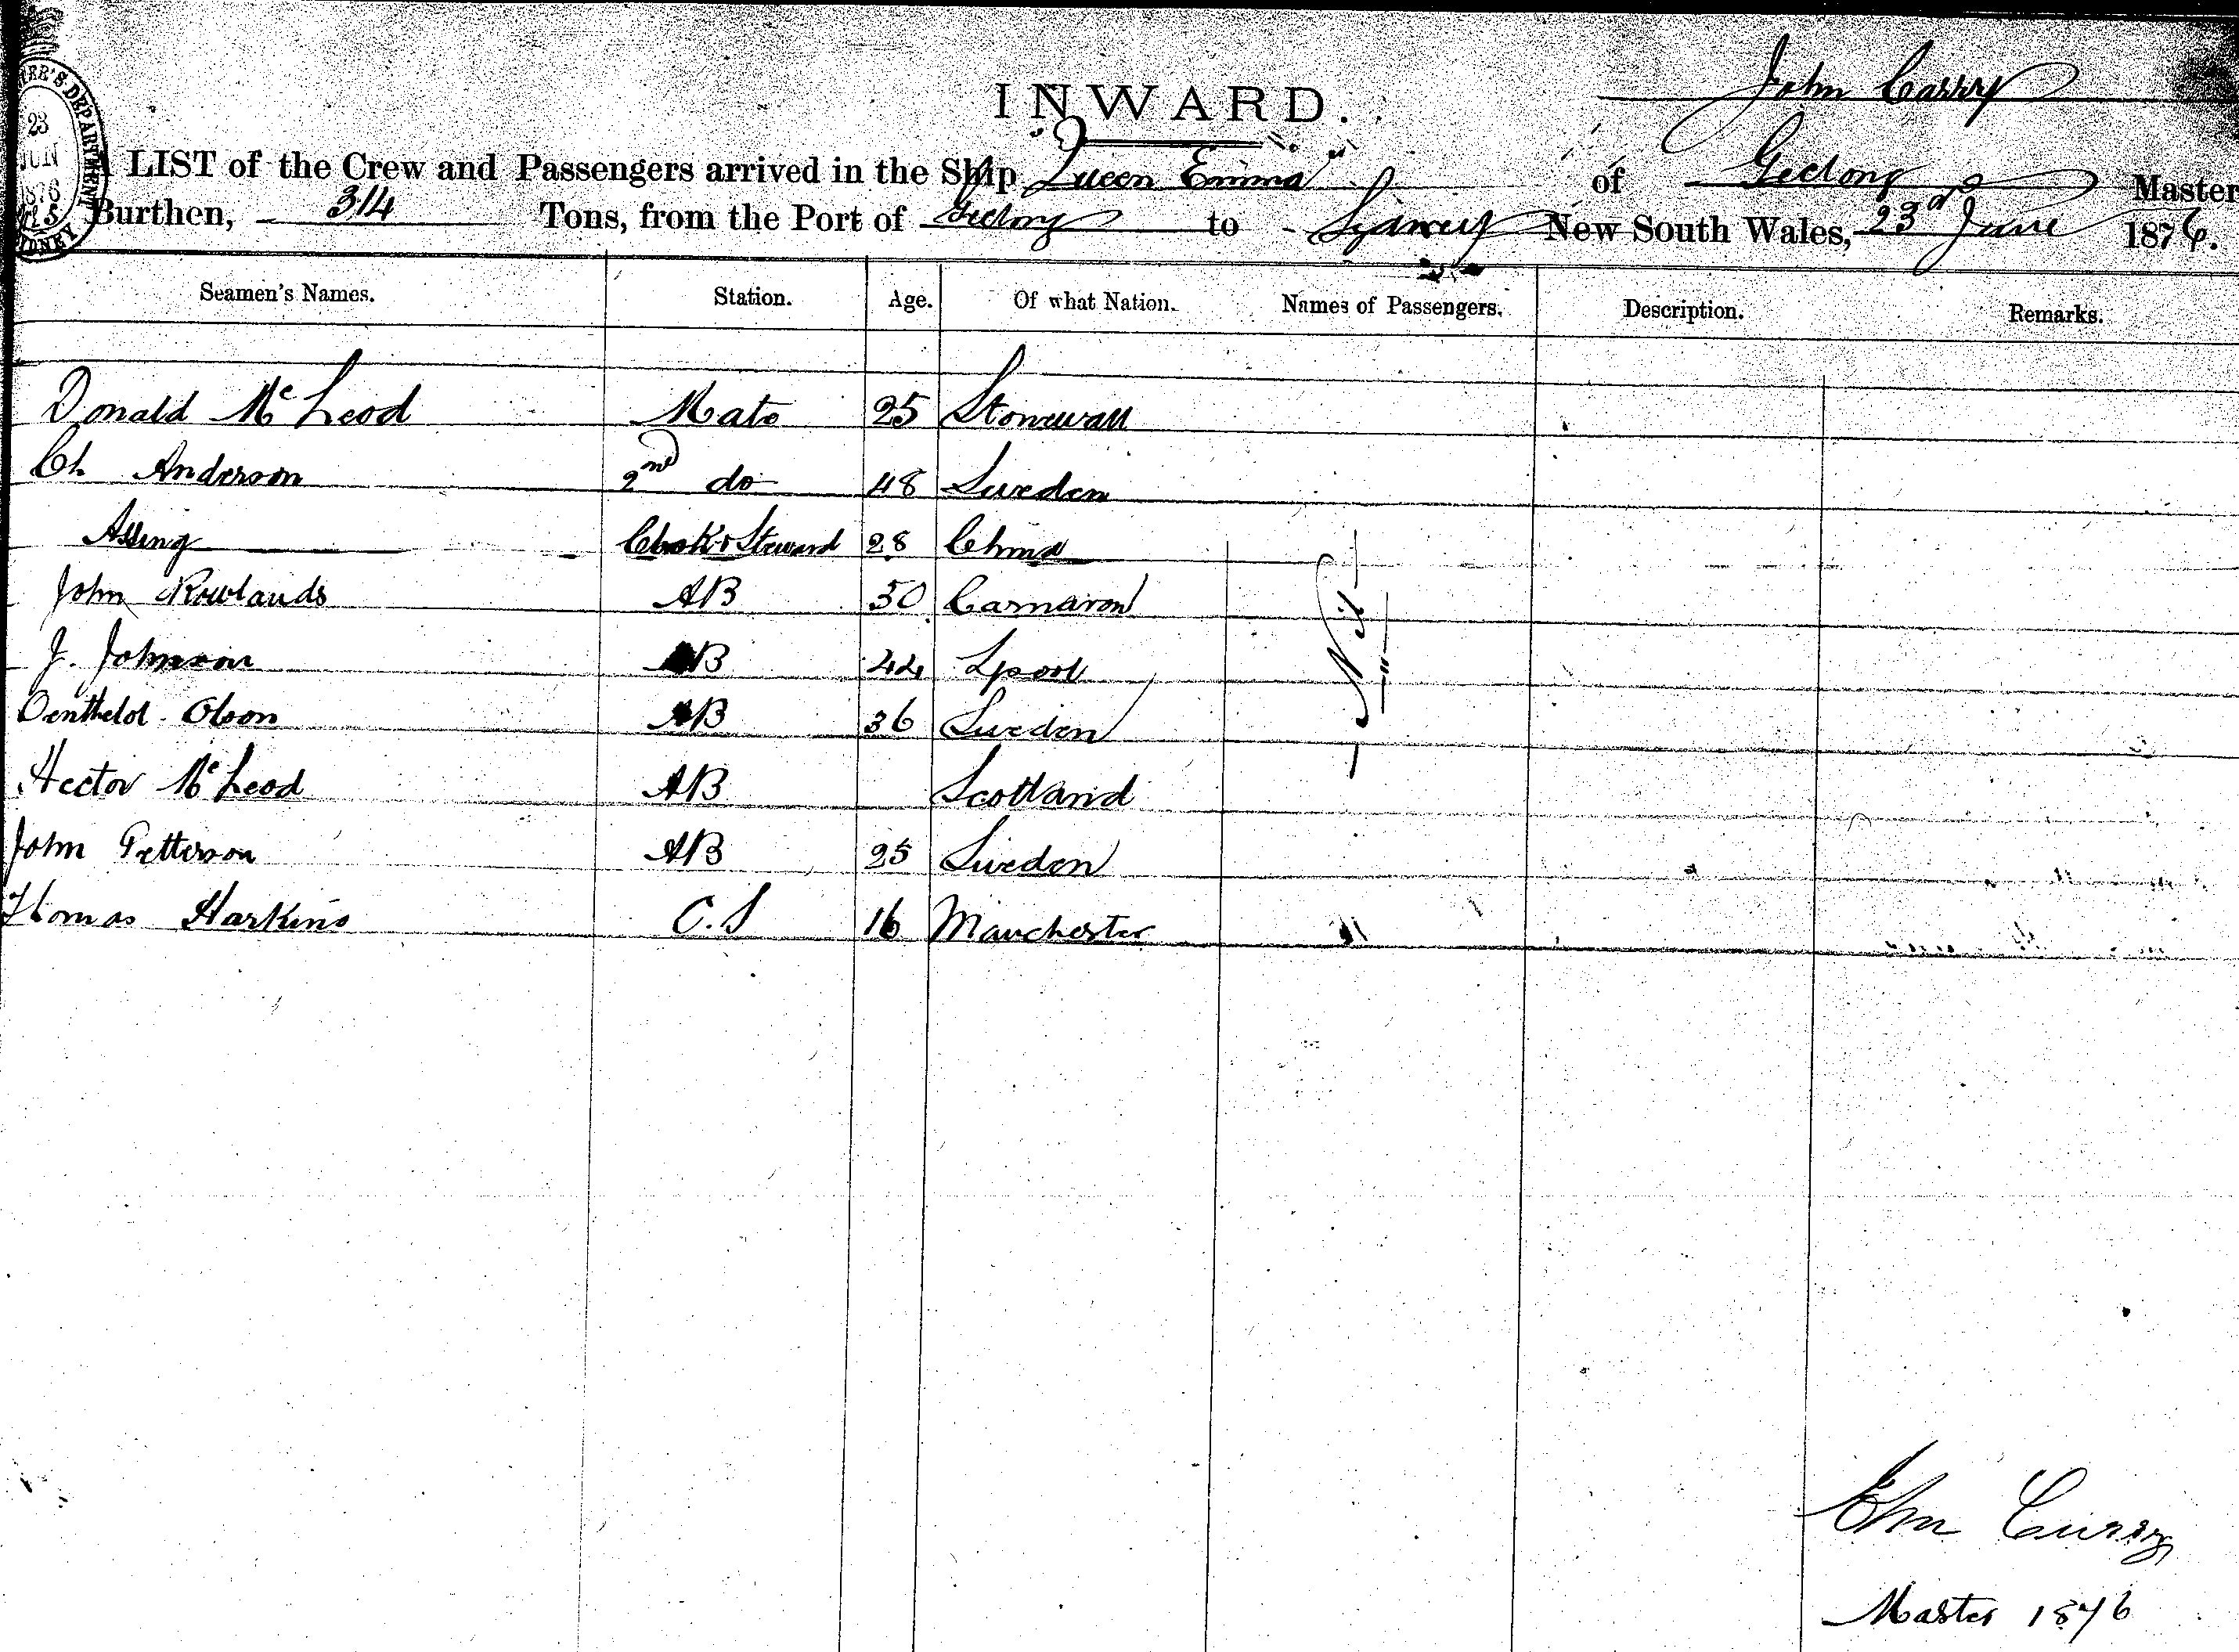 John Carrry
INWARD.
LIST of the Crew and Passengers arrived in the Ship Queen Emma of Geelong Master
Burthen, 314 Tons, from the Port of Geelong to Sydney New South Wales, 23d June 1876.
23 JUN 1876
Seamen's Names. Station. Age. Of what Nation. Names of Passengers. Description. Remarks.
Donald McLeod Mate 25 Stonewall
Ch Anderson 2nd do 48 Sweden
Assing Cook & Steward 28 China
John Rowlands AB 50 Carnarvon
J. Johnson AB 44 Lpool
Olson AB 36 Sweden
Hector McLeod AB Scotland
John Petterson AB 25 Sweden
Thomas Harkins O.S 16 Manchester
Nil
John Curry
Master 1876